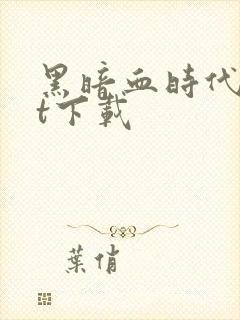 黑暗血時代
t下載
葉俏